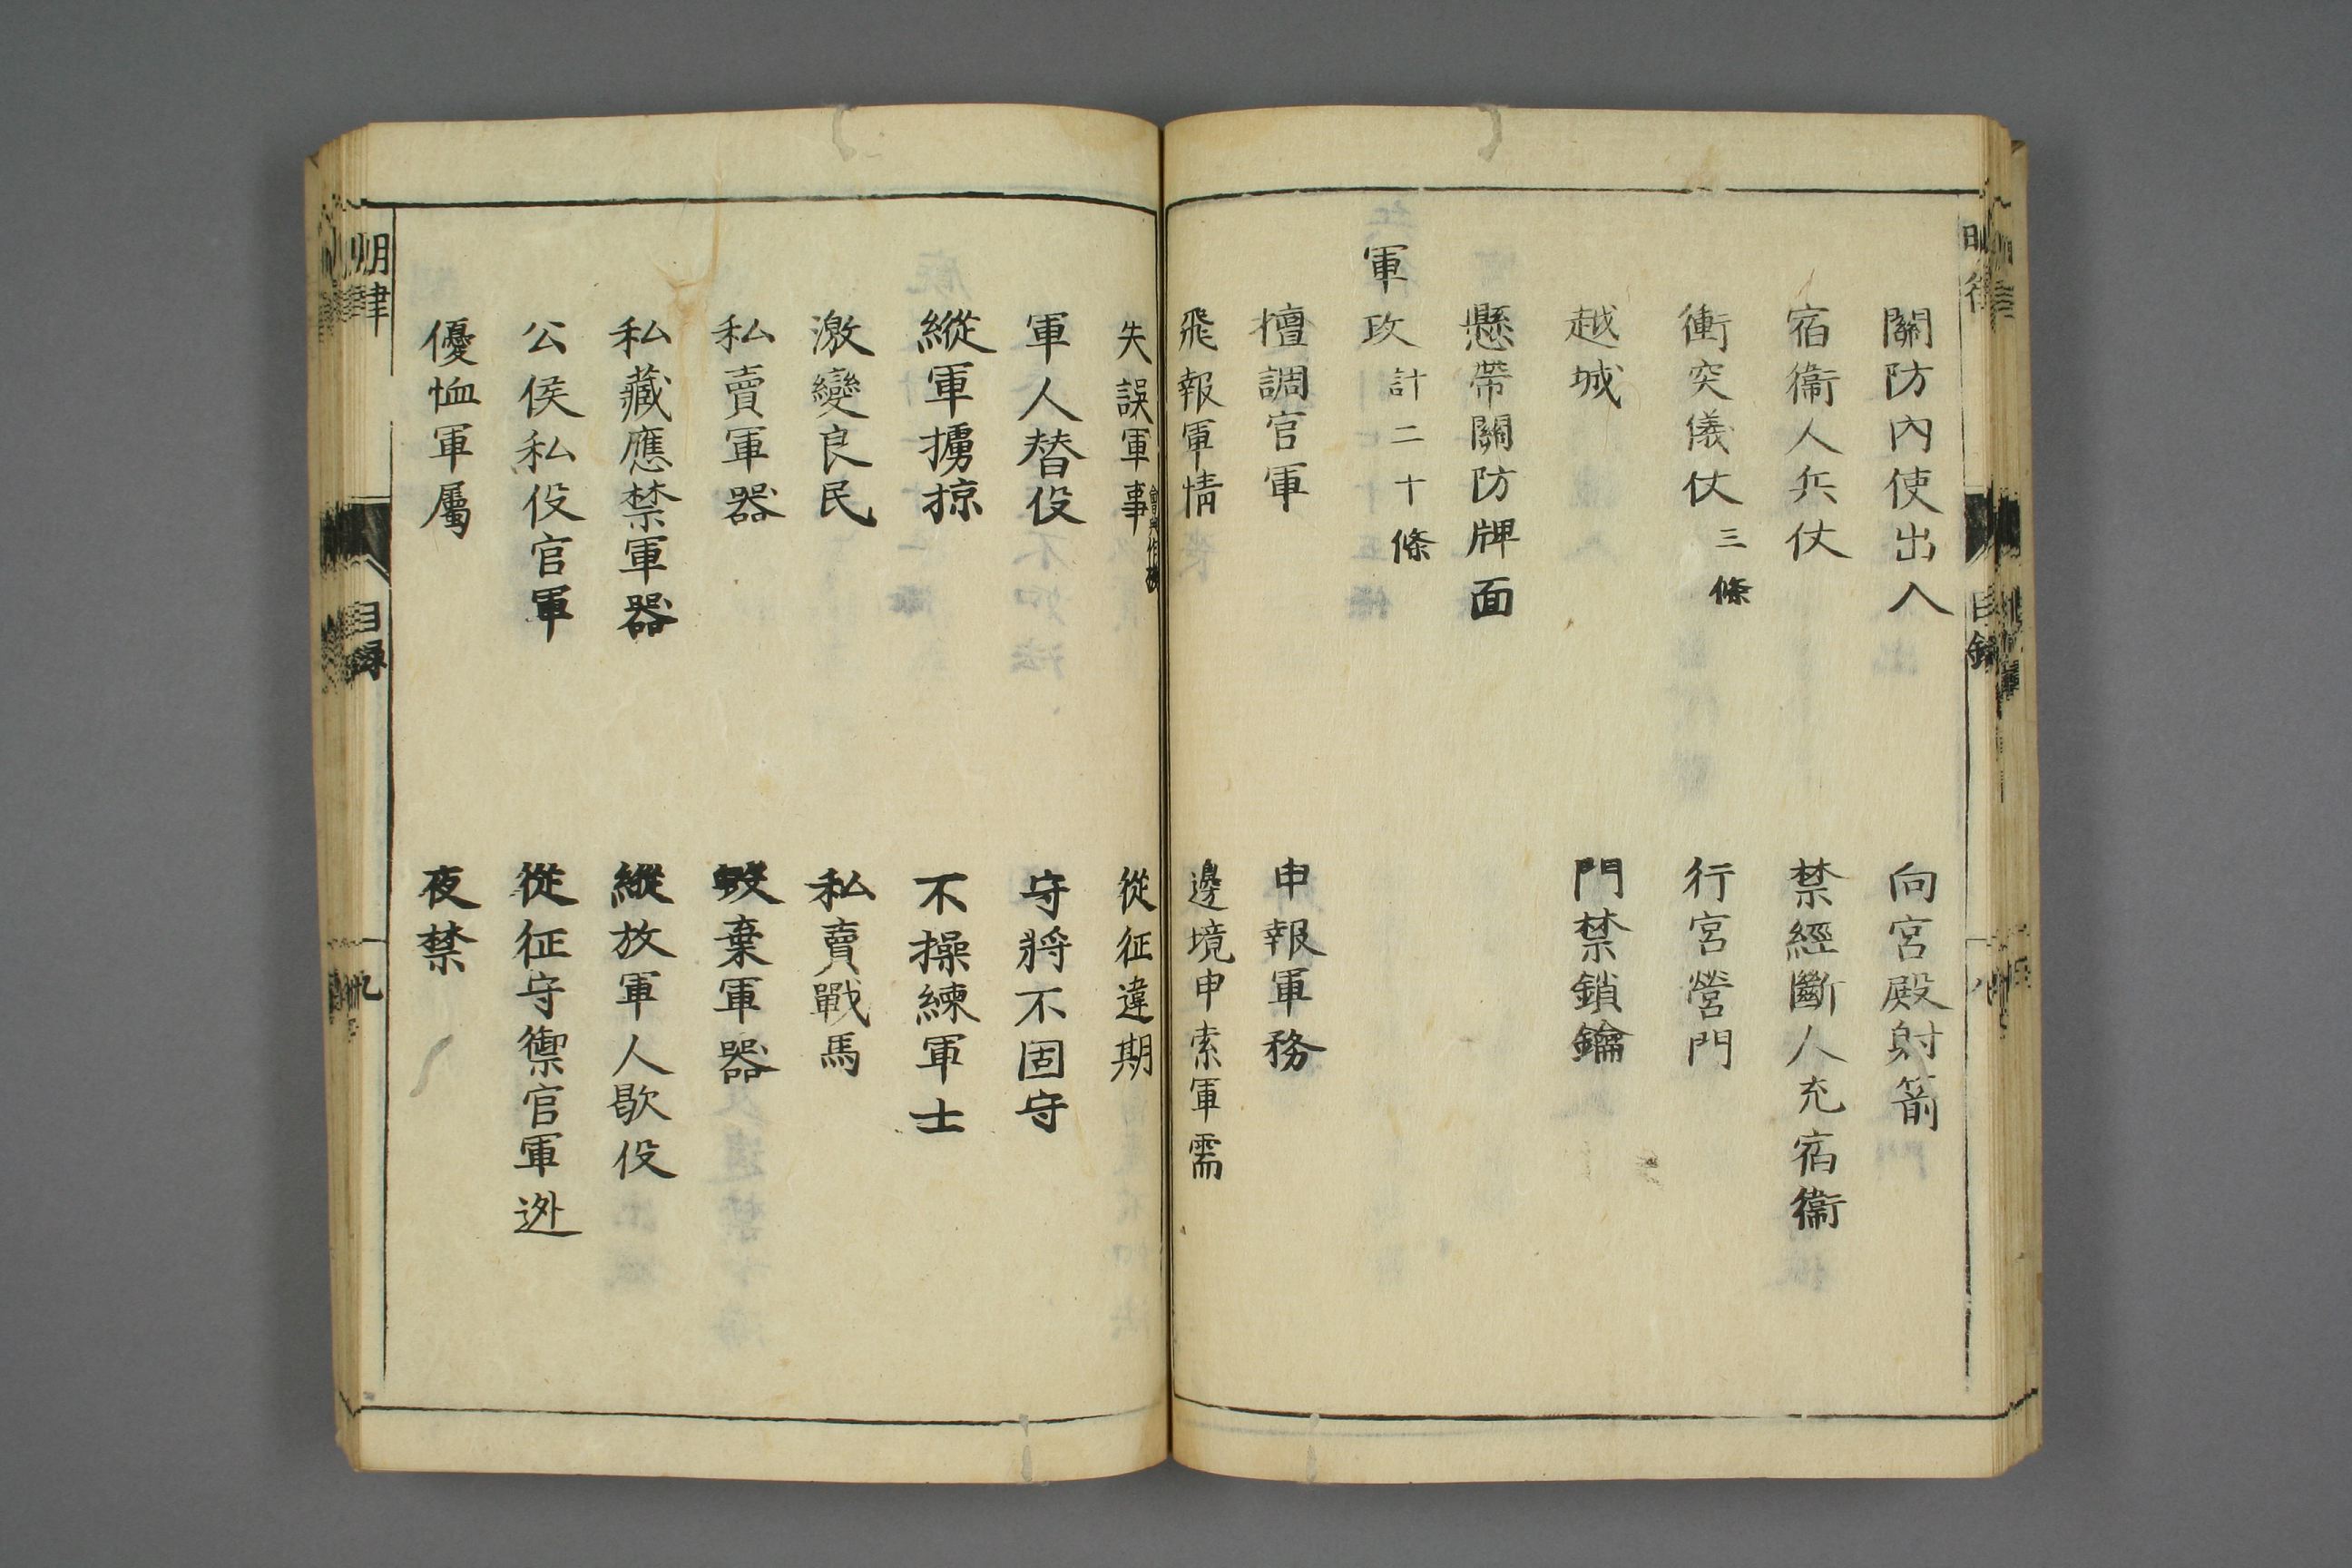 關防內使出入　向宮殿射箭
宿衞人兵仗　禁經斷人充宿衞
衝突儀仗三條　行宮營門
越城　門禁鎖鑰
懸帶關防牌面
軍政計二十條
擅調官軍　申報軍務
飛報軍情　邊境申索軍需
失誤軍事　從征違期
軍人替役　守將不固守
縱軍擄掠　不操練軍士
激變良民　私賣戰馬
私賣軍器　毀棄軍器
私藏應禁軍器　縱放軍人歇役
公侯私役官軍　從征守禦官軍迯
優恤軍屬　夜禁
明律　目錄　九